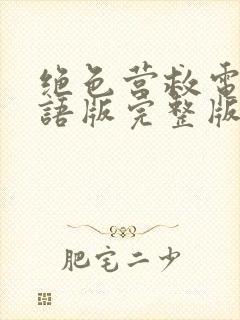 绝色营救電
語版完整版
肥宅二少